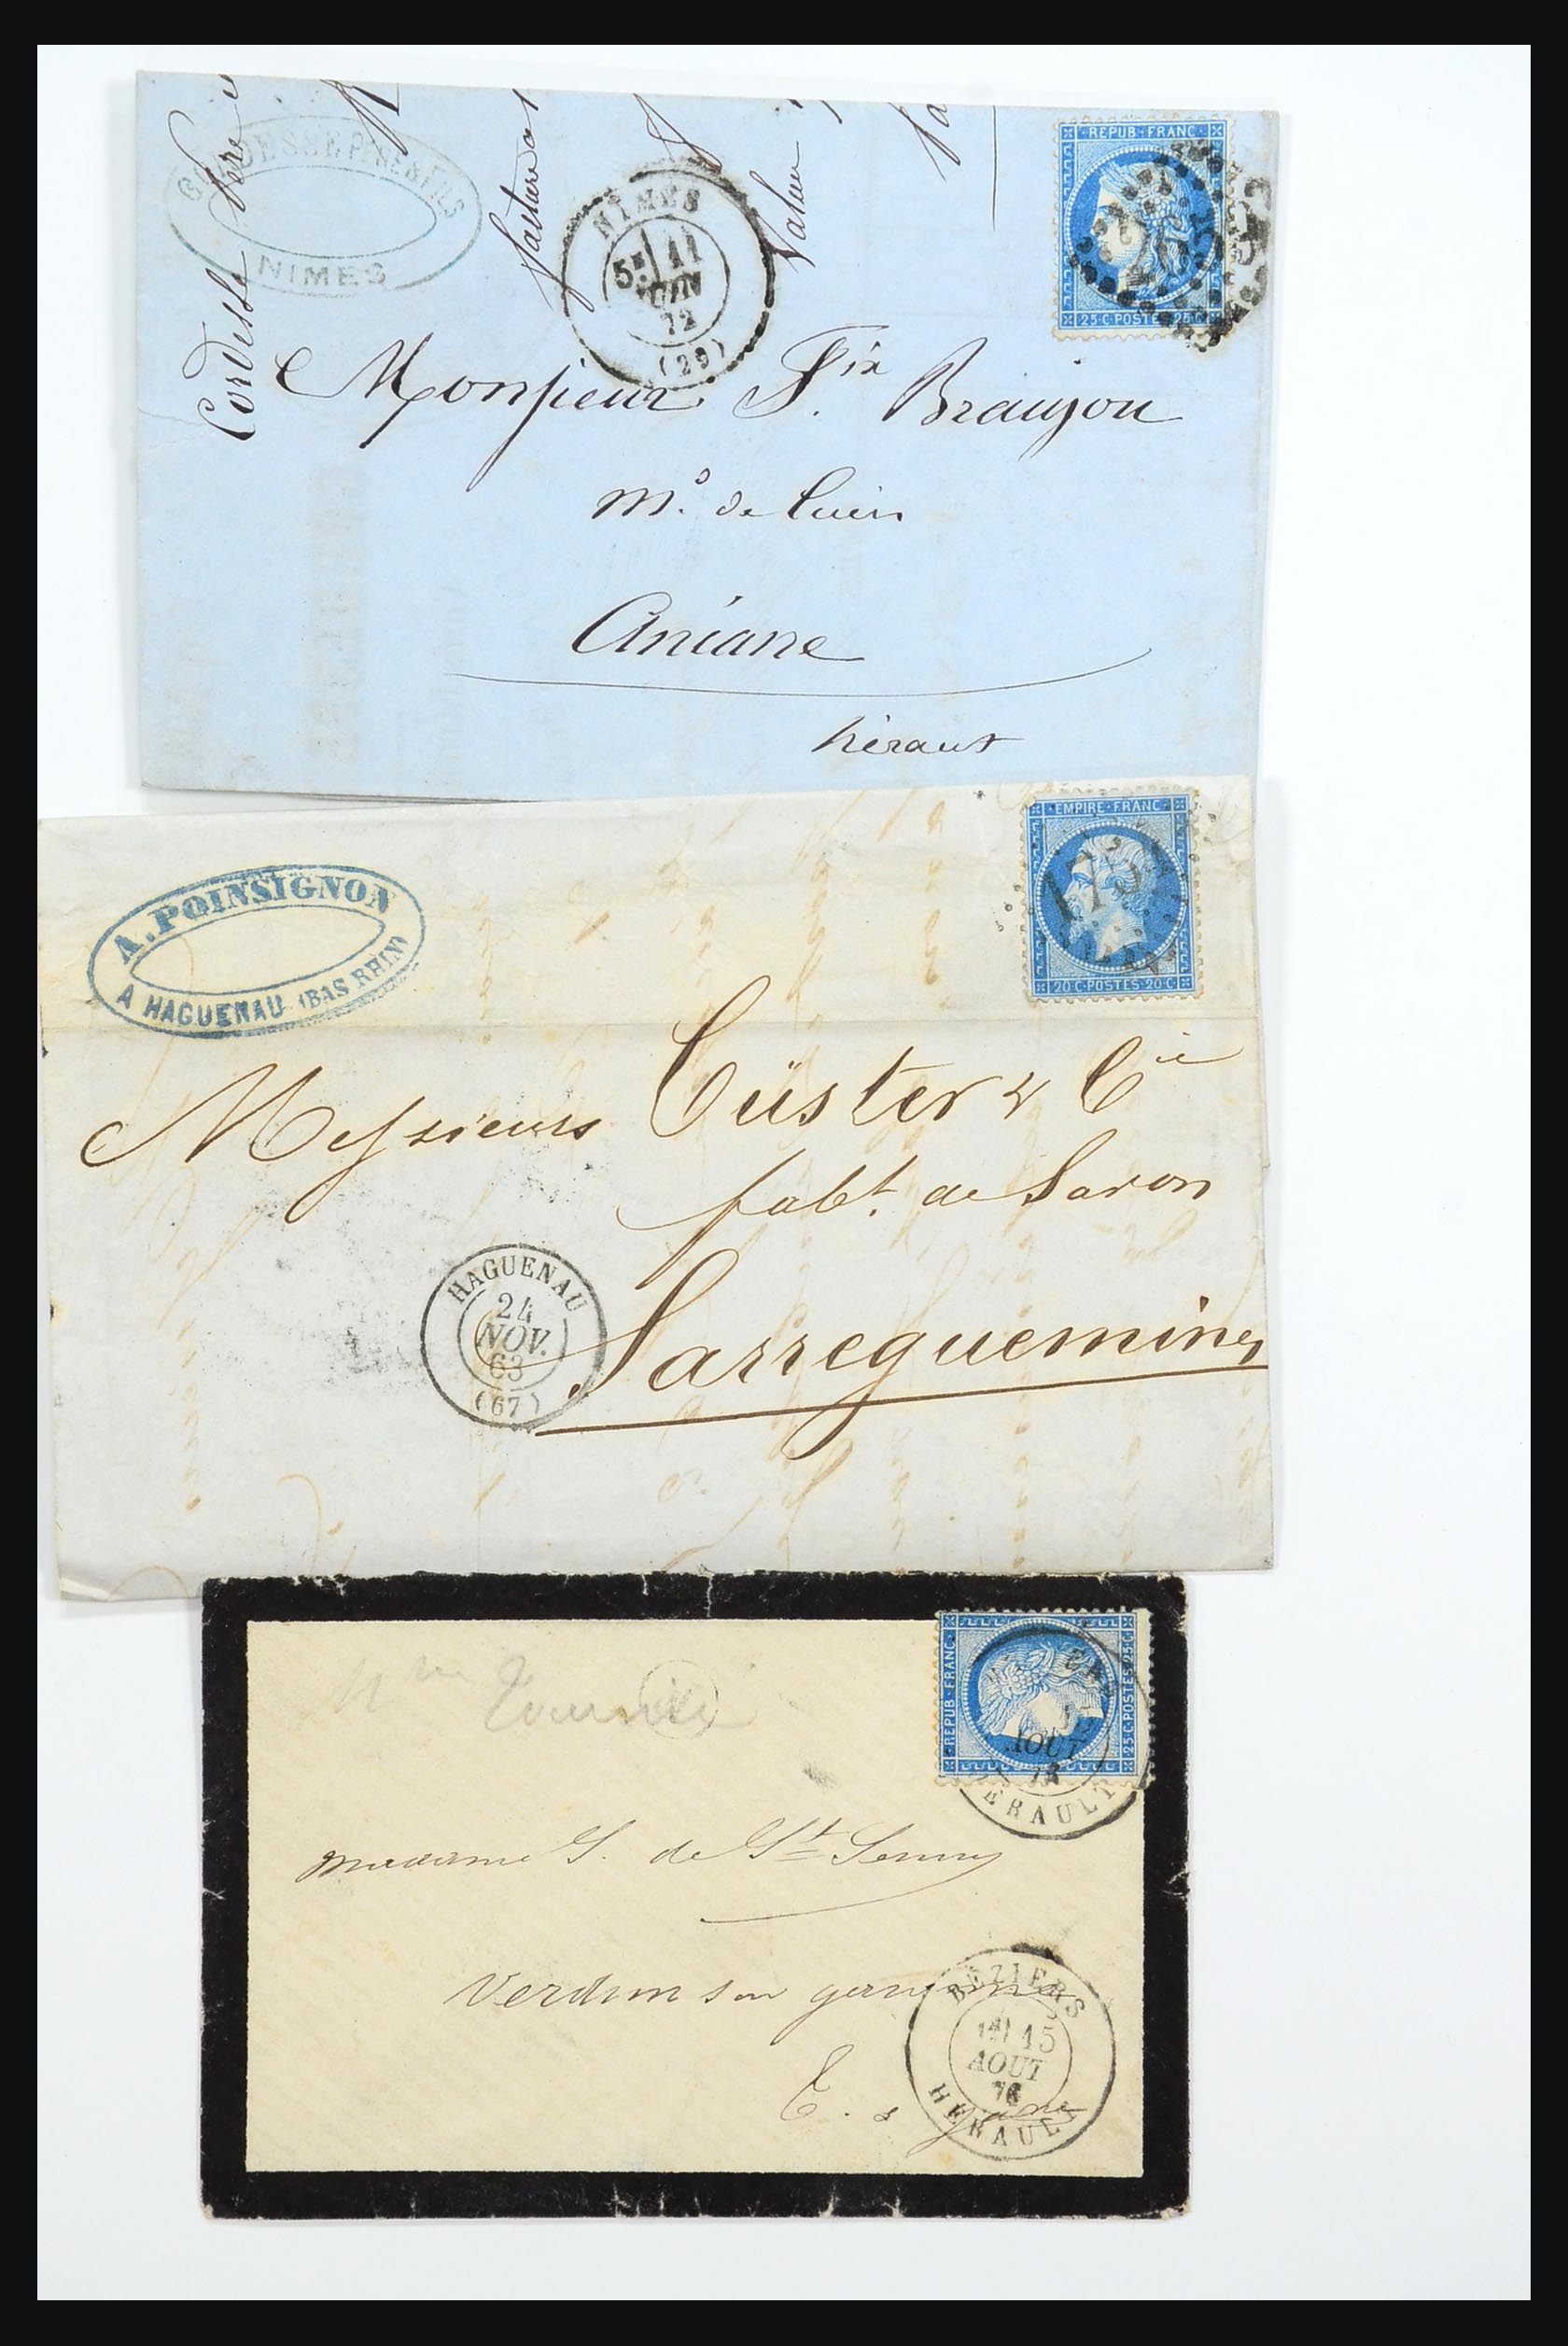 PERE & FILS
NIMES
Cordesse Père
facture
Valeur
NIMES
5E 11
JUIN
72
(29)
REPUB·FRANC
25·C·POSTES·25·C
Monsieur F.ix Braujon
M.d de Cuirs
Aniane
hérault
EMPIRE·FRANC
20·C·POSTES·20·C
175
A. POINSIGNON
A HAGUENAU (BAS RHIN)
Messieurs Cüster & Cie
fabt. de Savon
Sarreguemines
HAGUENAU
24
NOV.
63
(67)
REPUB·FRANC
25·C·POSTES·25·C
AOUT
HERAULT
Mme
madame G. de St
Verdun sur garonne
T. & garne
BÉZIERS
15
AOUT
76
HERAULT